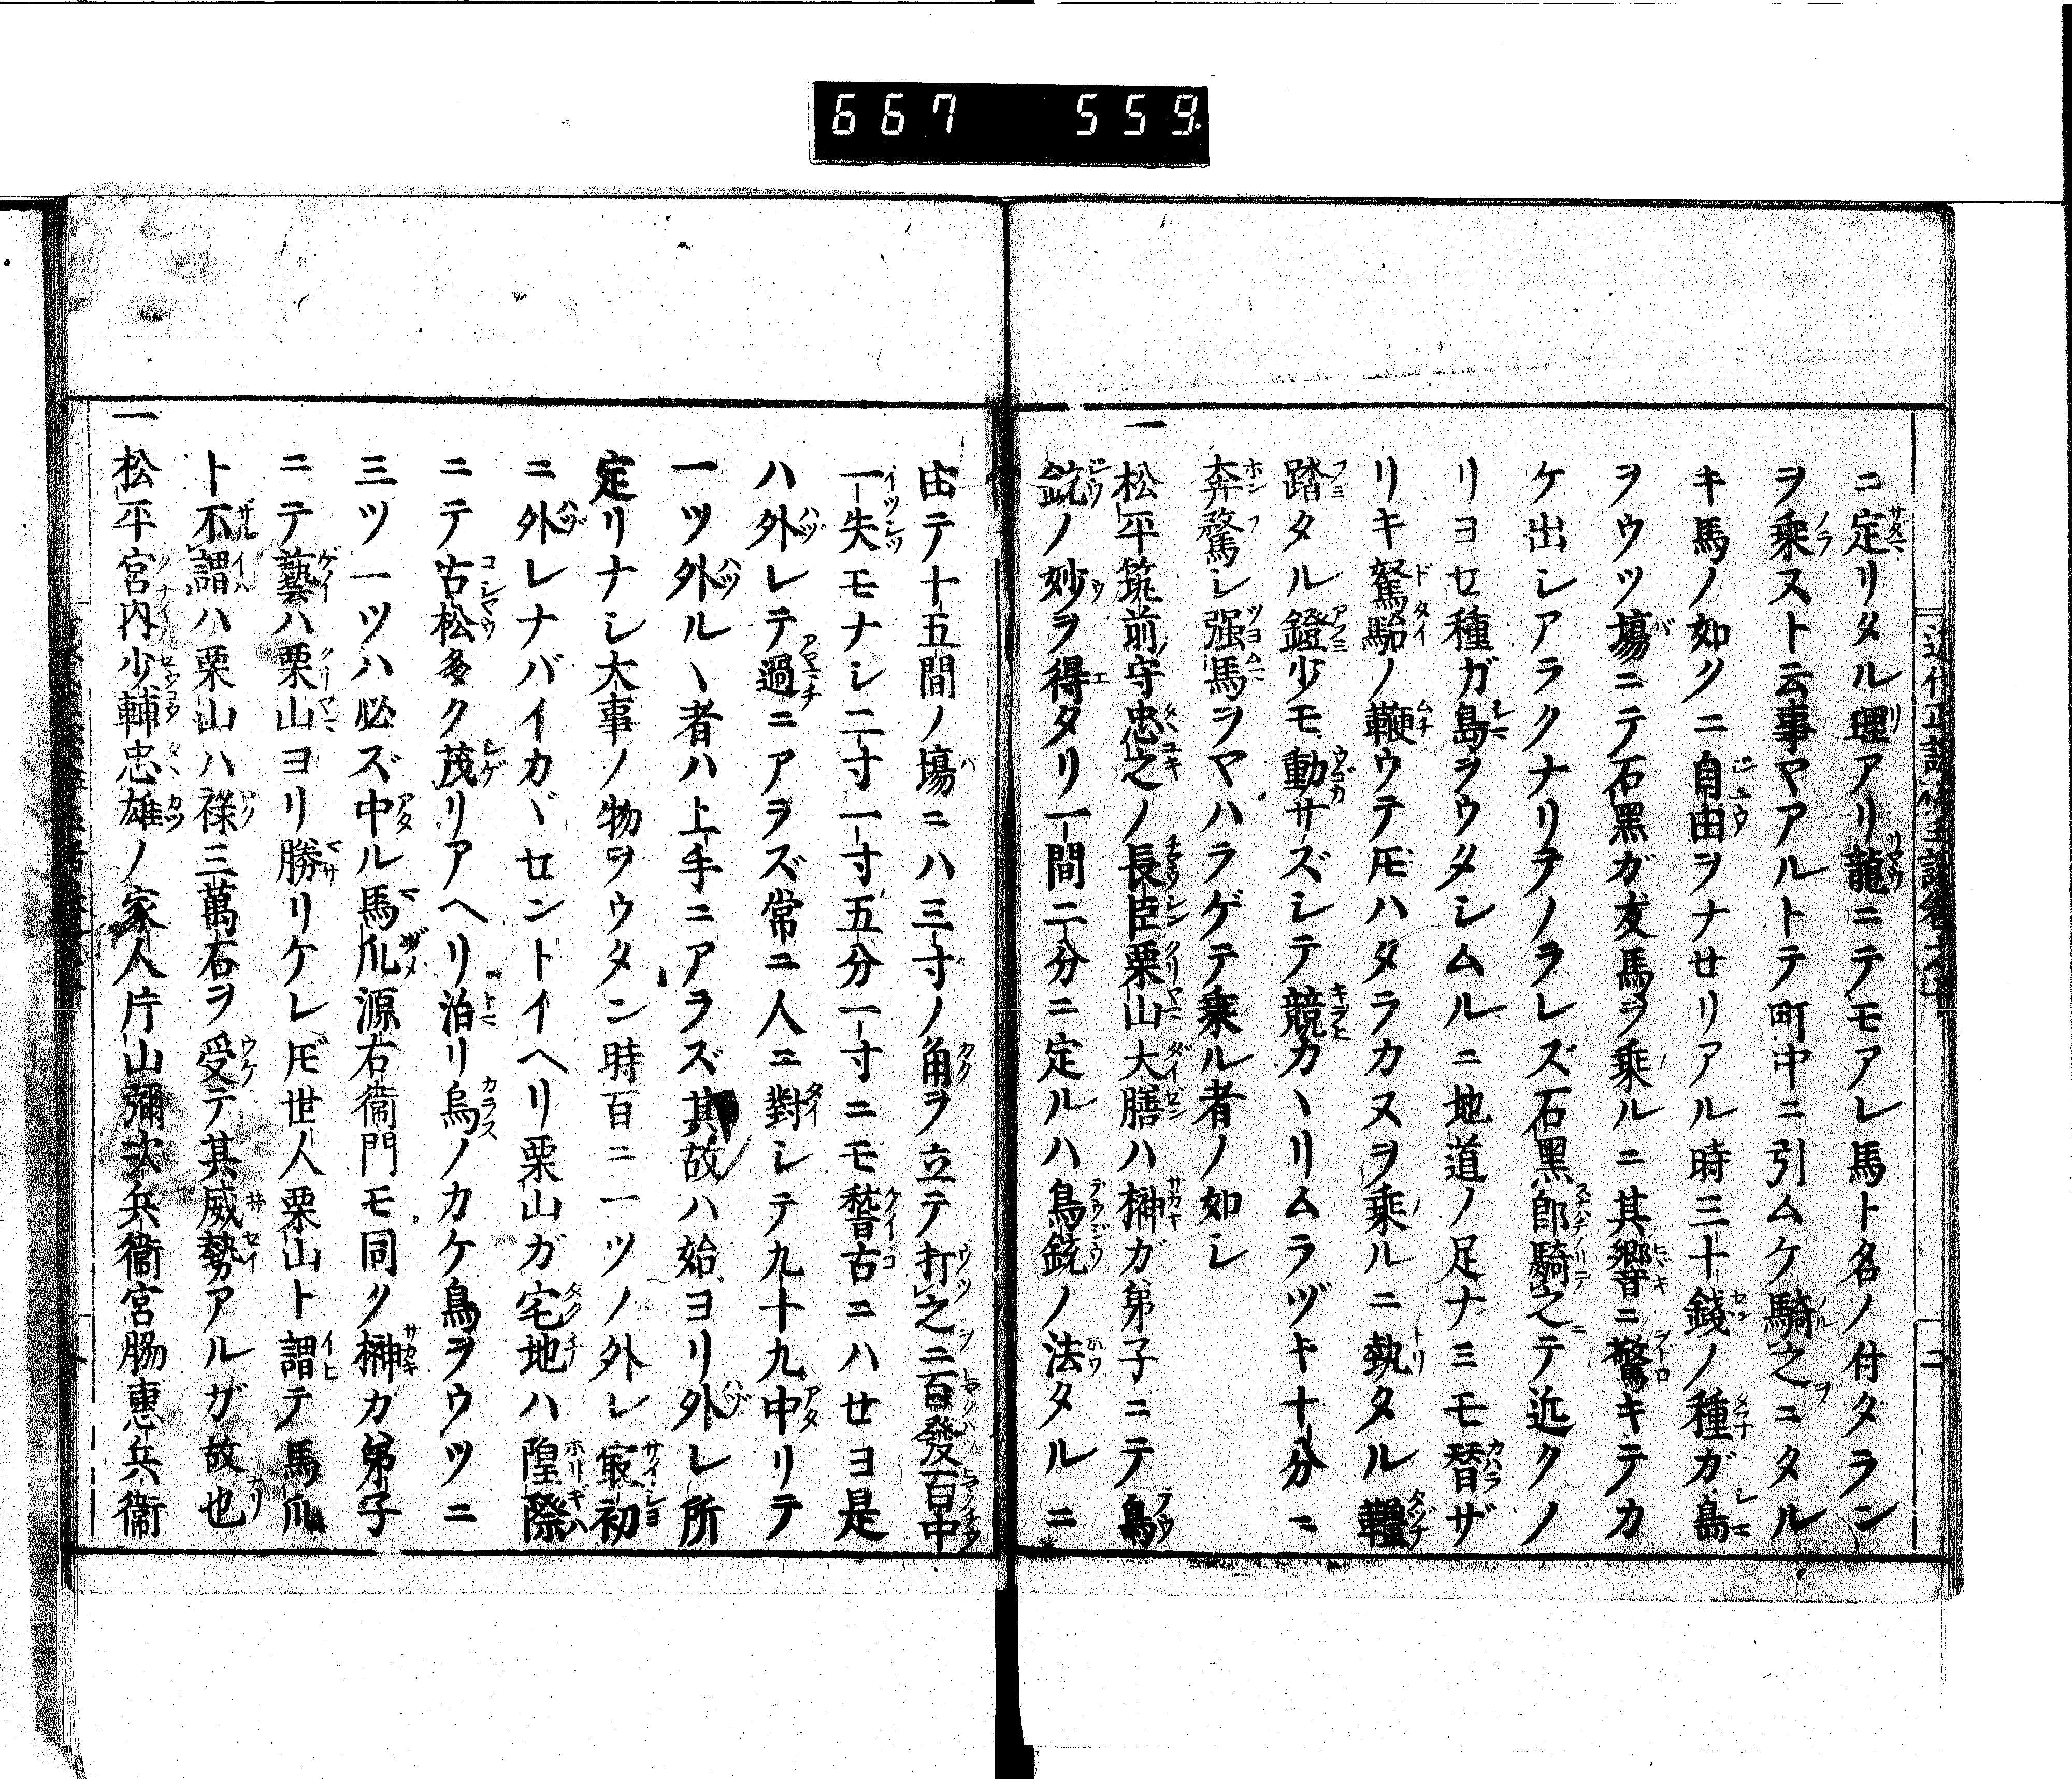 667 559
ニ定リタル理アリ龍ニテモアレ馬ト名ノ付タラン
ヲ乗ストト云事ヤアルトテ町中ニ引ムケ騎之ニタル
キ馬ノ如クニ自由ヲナセリアル時三十錢ノ種ガ島
ヲウツ塲ニテ石黒ガ友馬ヲ乗ルニ其響ニ驚キテカ
ケ出シアラクナリテノラレズ石黒郎騎之テ近クノ
リヨセ種ガ島ヲウタシムルニ地道ノ足ナミモ替ザ
リキ駑駘ノ鞭ウテ𪜈ハタラカヌヲ乗ルニ執タル韁
踏タル鐙少モ動サズシテ競カヽリムラヅキ十分ニ
奔騖シ强馬ヲヤハラゲテ乗ル者ノ如シ
一松平筑前守忠之ノ長臣栗山大膳ハ榊ガ弟子ニテ鳥
銃ノ妙ヲ得タリ一間二分ニ定ルハ鳥銃ノ法タルニ
由テ十五間ノ塲ニハ三寸ノ角ヲ立テ打之ニ百發百中
一失モナシ二寸一寸五分一寸ニモ稽古ニハせヨ是
ハ外レテ過ニアヲズ常ニ人ニ對シテ九十九中リテ
一ツ外ルヽ者ハ上手ニアラズ其故ハ始ヨリ外レ所
定リナシ大事ノ物ヲウタン時百ニ一ツノ外レ㝡初
ニ外レナバイカヾセントイヘリ栗山ガ宅地ハ隍際
ニテ古松多ク茂リアヘリ泊リ烏ノカケ鳥ヲウツニ
三ツ一ツハ必ズ中ル馬爪源右衞門モ同ク榊カ弟子
ニテ藝ハ栗山ヨリ勝リケレ𪜈世人栗山ト謂テ馬爪
ト不謂ハ栗山ハ祿三萬石ヲ受テ其威勢アルガ故也
一松平宮内少輔忠雄ノ家人片山彌次兵衞宮脇惠兵衞